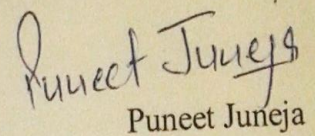 Puneet Juneja
Puneet Juneja